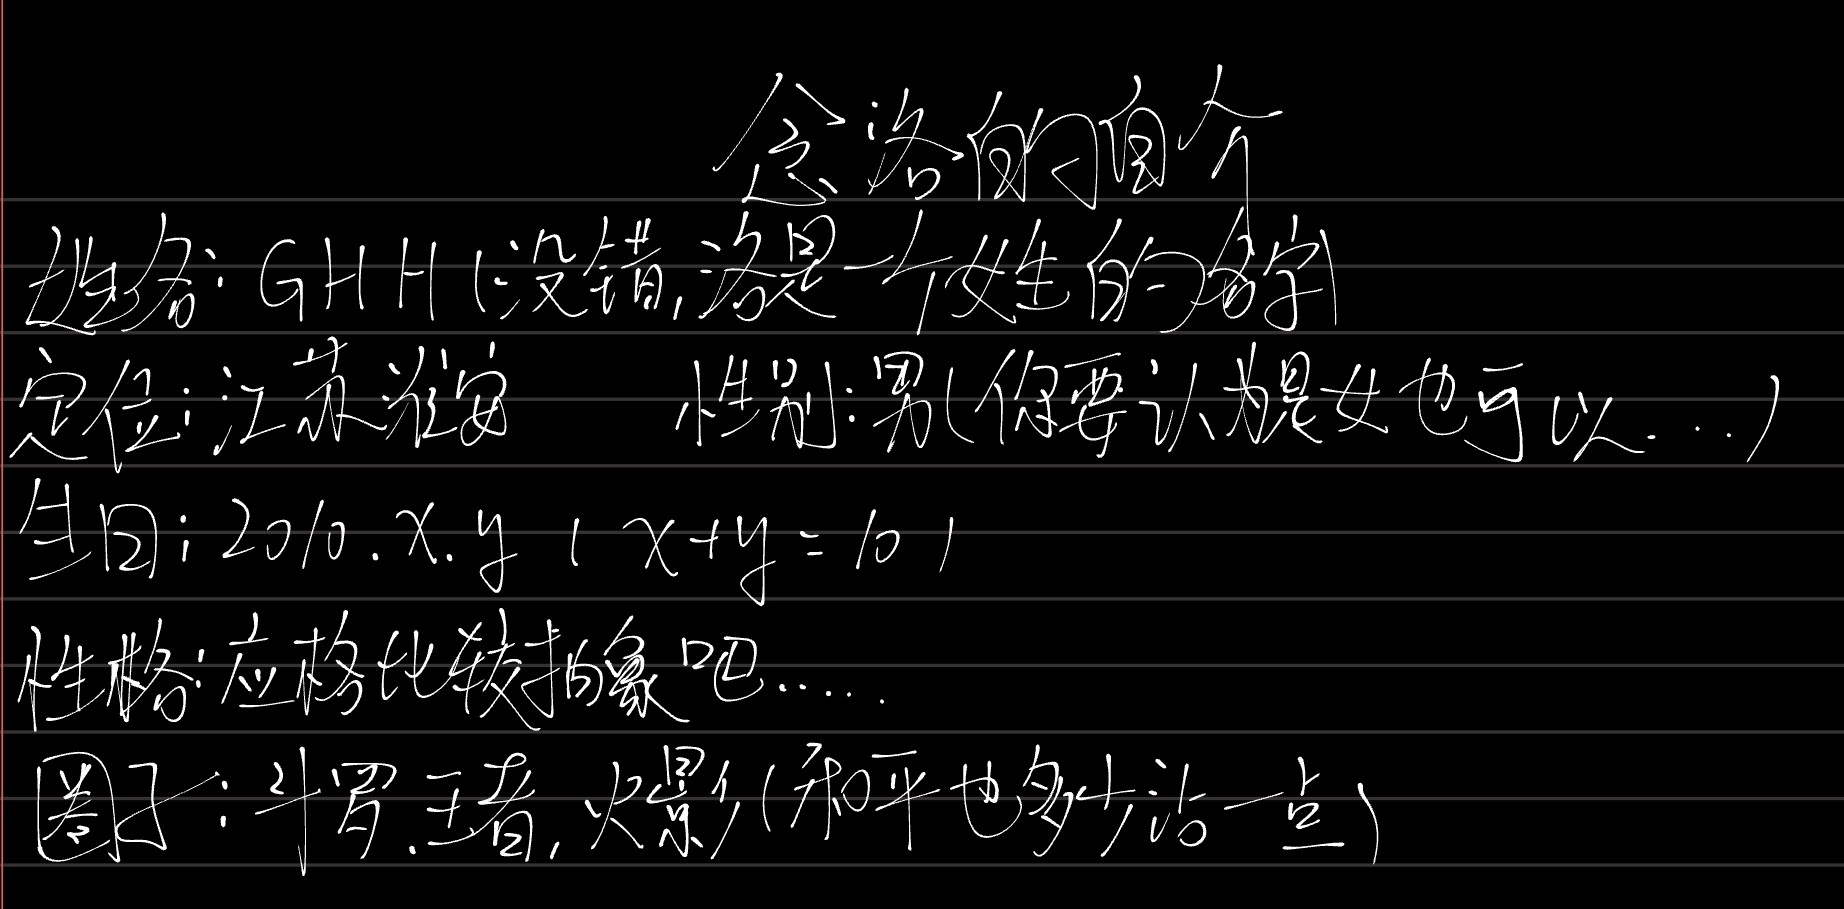 念洛的自介
姓名:GHH(没错,洛是一个女生的名字)
定位:江苏淮安 性别:男(你要认为是女也可以...)
生日:2010.x.y(x+y=10)
性格:应格比较抽象吧.....
圈子:斗罗.王者,火影(和平也多少沾一点)